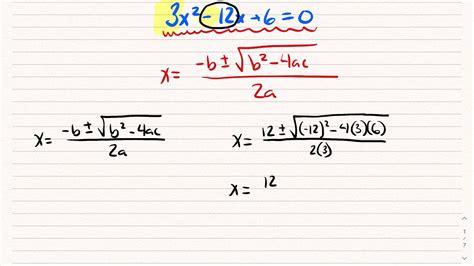 3x² - 12x + 6 = 0
x = (-b ± √(b² - 4ac)) / 2a
x = (-b ± √(b² - 4ac)) / 2a
x = (12 ± √((-12)² - 4(3)(6))) / 2(3)
x = 12
1 / 7